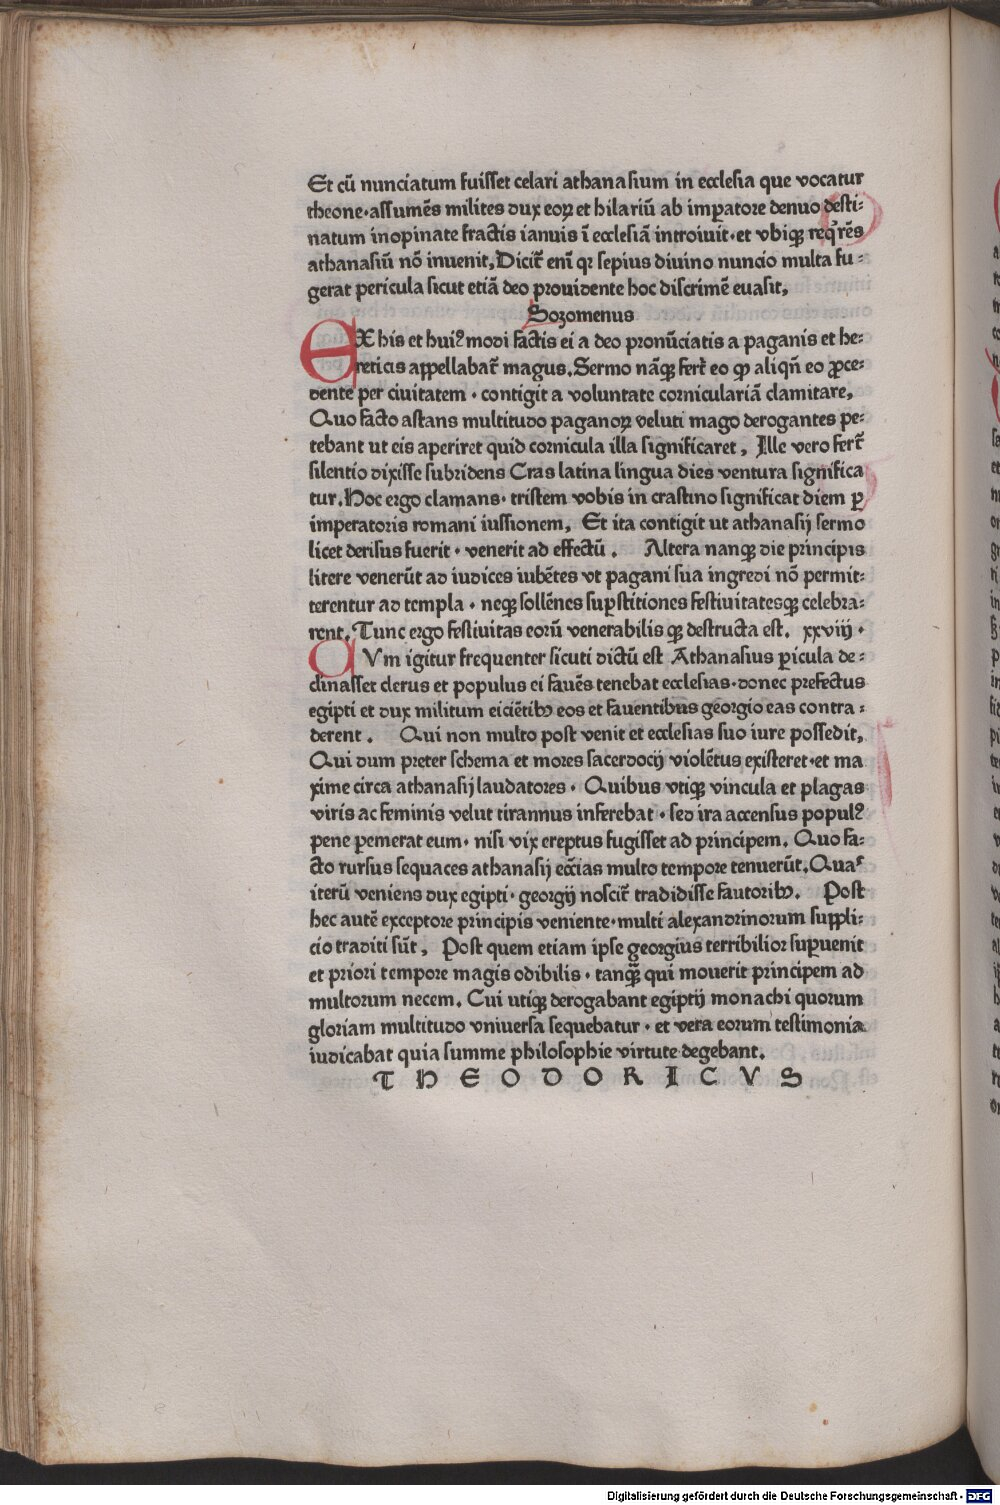 Et cū nunciatum fuisset celari athanasium in ecclesia que vocatur
theone·assumēs milites dux eoꝝ et hilariū ab imperatore denuo desti⸗
natum inopinate fractis ianuis ī ecclesiā introiuit·et vbiqꝫ reqͥrēs
athanasiū nō inuenit, Dicit᷑ enī qꝛ sepius diuino nuncio multa fu⸗
gerat pericula sicut etiā deo prouidente hoc discrimē euasit,
Sozomenus
EX his et huiꝰ modi factis ei a deo pronūciatis a paganis et he⸗
reticis appellabat᷑ magus. Sermo nāqꝫ fert᷑ eo ꝙ aliqn̄ eo ꝓce⸗
dente per ciuitatem · contigit a voluntate cornicularia᷒ clamitare,
Quo facto astans multitudo paganoꝝ veluti mago derogantes pe⸗
tebant ut eis aperiret quid cornicula illa significaret, Ille vero fert᷑
silentio dixisse subridens Cras latina lingua dies ventura significa
tur. Hoc ergo clamans· tristem vobis in crastino significat diem ꝑ
imperatoris romani iussionem, Et ita contigit ut athanasij sermo
licet derisus fuerit · venerit ad effectū . Altera nanqꝫ die principis
litere venerūt ad iudices iubētes vt pagani sua ingredi nō permit⸗
terentur ad templa · neqꝫ sollēnes suꝑstitiones festiuitatesqꝫ celebra⸗
rent. Tunc ergo festiuitas eorū venerabilis qꝫ destructa est. xxviij ·
CVm igitur frequenter sicuti dictū est Athanasius ꝑicula de⸗
clinasset clerus et populus ei fauēs tenebat ecclesias·donec prefectus
egipti et dux militum eiciētibꝫ eos et fauentibus georgio eas contra⸗
derent . Qui non multo post venit et ecclesias suo iure possedit,
Qui dum preter schema et mores sacerdocij violētus existeret·et ma
xime circa athanasij laudatores · Quibus vtiqꝫ vincula et plagas
viris ac feminis velut tirannus inferebat · sed ira accensus populꝰ
pene ꝑemerat eum· nisi vix ereptus fugisset ad principem. Quo fa⸗
cto rursus sequaces athanasij ecc̄ias multo tempore tenuerūt. Quaſ
iterū veniens dux egipti · georgij noscit᷑ tradidisse fautoribꝫ. Post
hec autē exceptore principis veniente·multi alexandrinorum suppli⸗
cio traditi sūt, Post quem etiam ipse georgius terribilior suꝑuenit
et priori tempore magis odibilis · tanqꝫ̄ qui mouerit principem ad
multorum necem. Cui utiqꝫ derogabant egiptij monachi quorum
gloriam multitudo vniuersa sequebatur · et vera eorum testimonia
iudicabat quia summe philosophie virtute degebant.
THEODORICVS
Digitalisierung gefördert durch die Deutsche Forschungsgemeinschaft - DFG